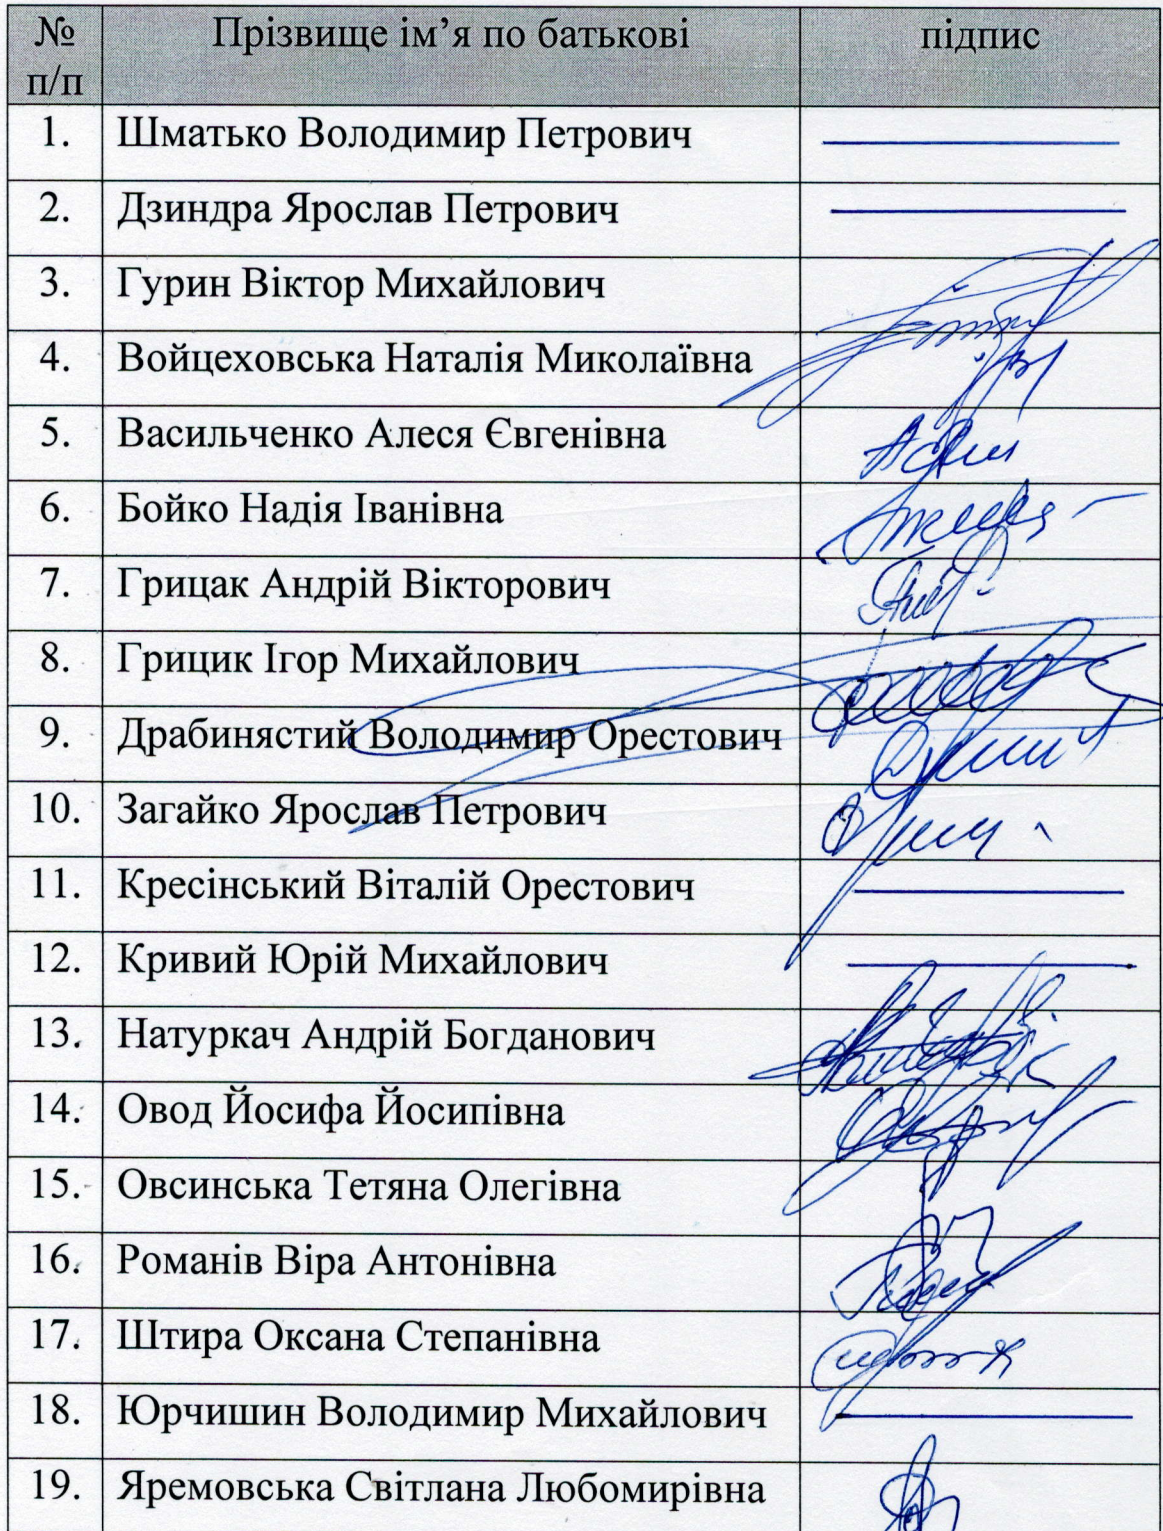 № п/п Прізвище ім’я по батькові підпис
1. Шматько Володимир Петрович
2. Дзиндра Ярослав Петрович
3. Гурин Віктор Михайлович
4. Войцеховська Наталія Миколаївна
5. Васильченко Алеся Євгенівна
6. Бойко Надія Іванівна
7. Грицак Андрій Вікторович
8. Грицик Ігор Михайлович
9. Драбинястий Володимир Орестович
10. Загайко Ярослав Петрович
11. Кресінський Віталій Орестович
12. Кривий Юрій Михайлович
13. Натуркач Андрій Богданович
14. Овод Йосифа Йосипівна
15. Овсинська Тетяна Олегівна
16. Романів Віра Антонівна
17. Штира Оксана Степанівна
18. Юрчишин Володимир Михайлович
19. Яремовська Світлана Любомирівна